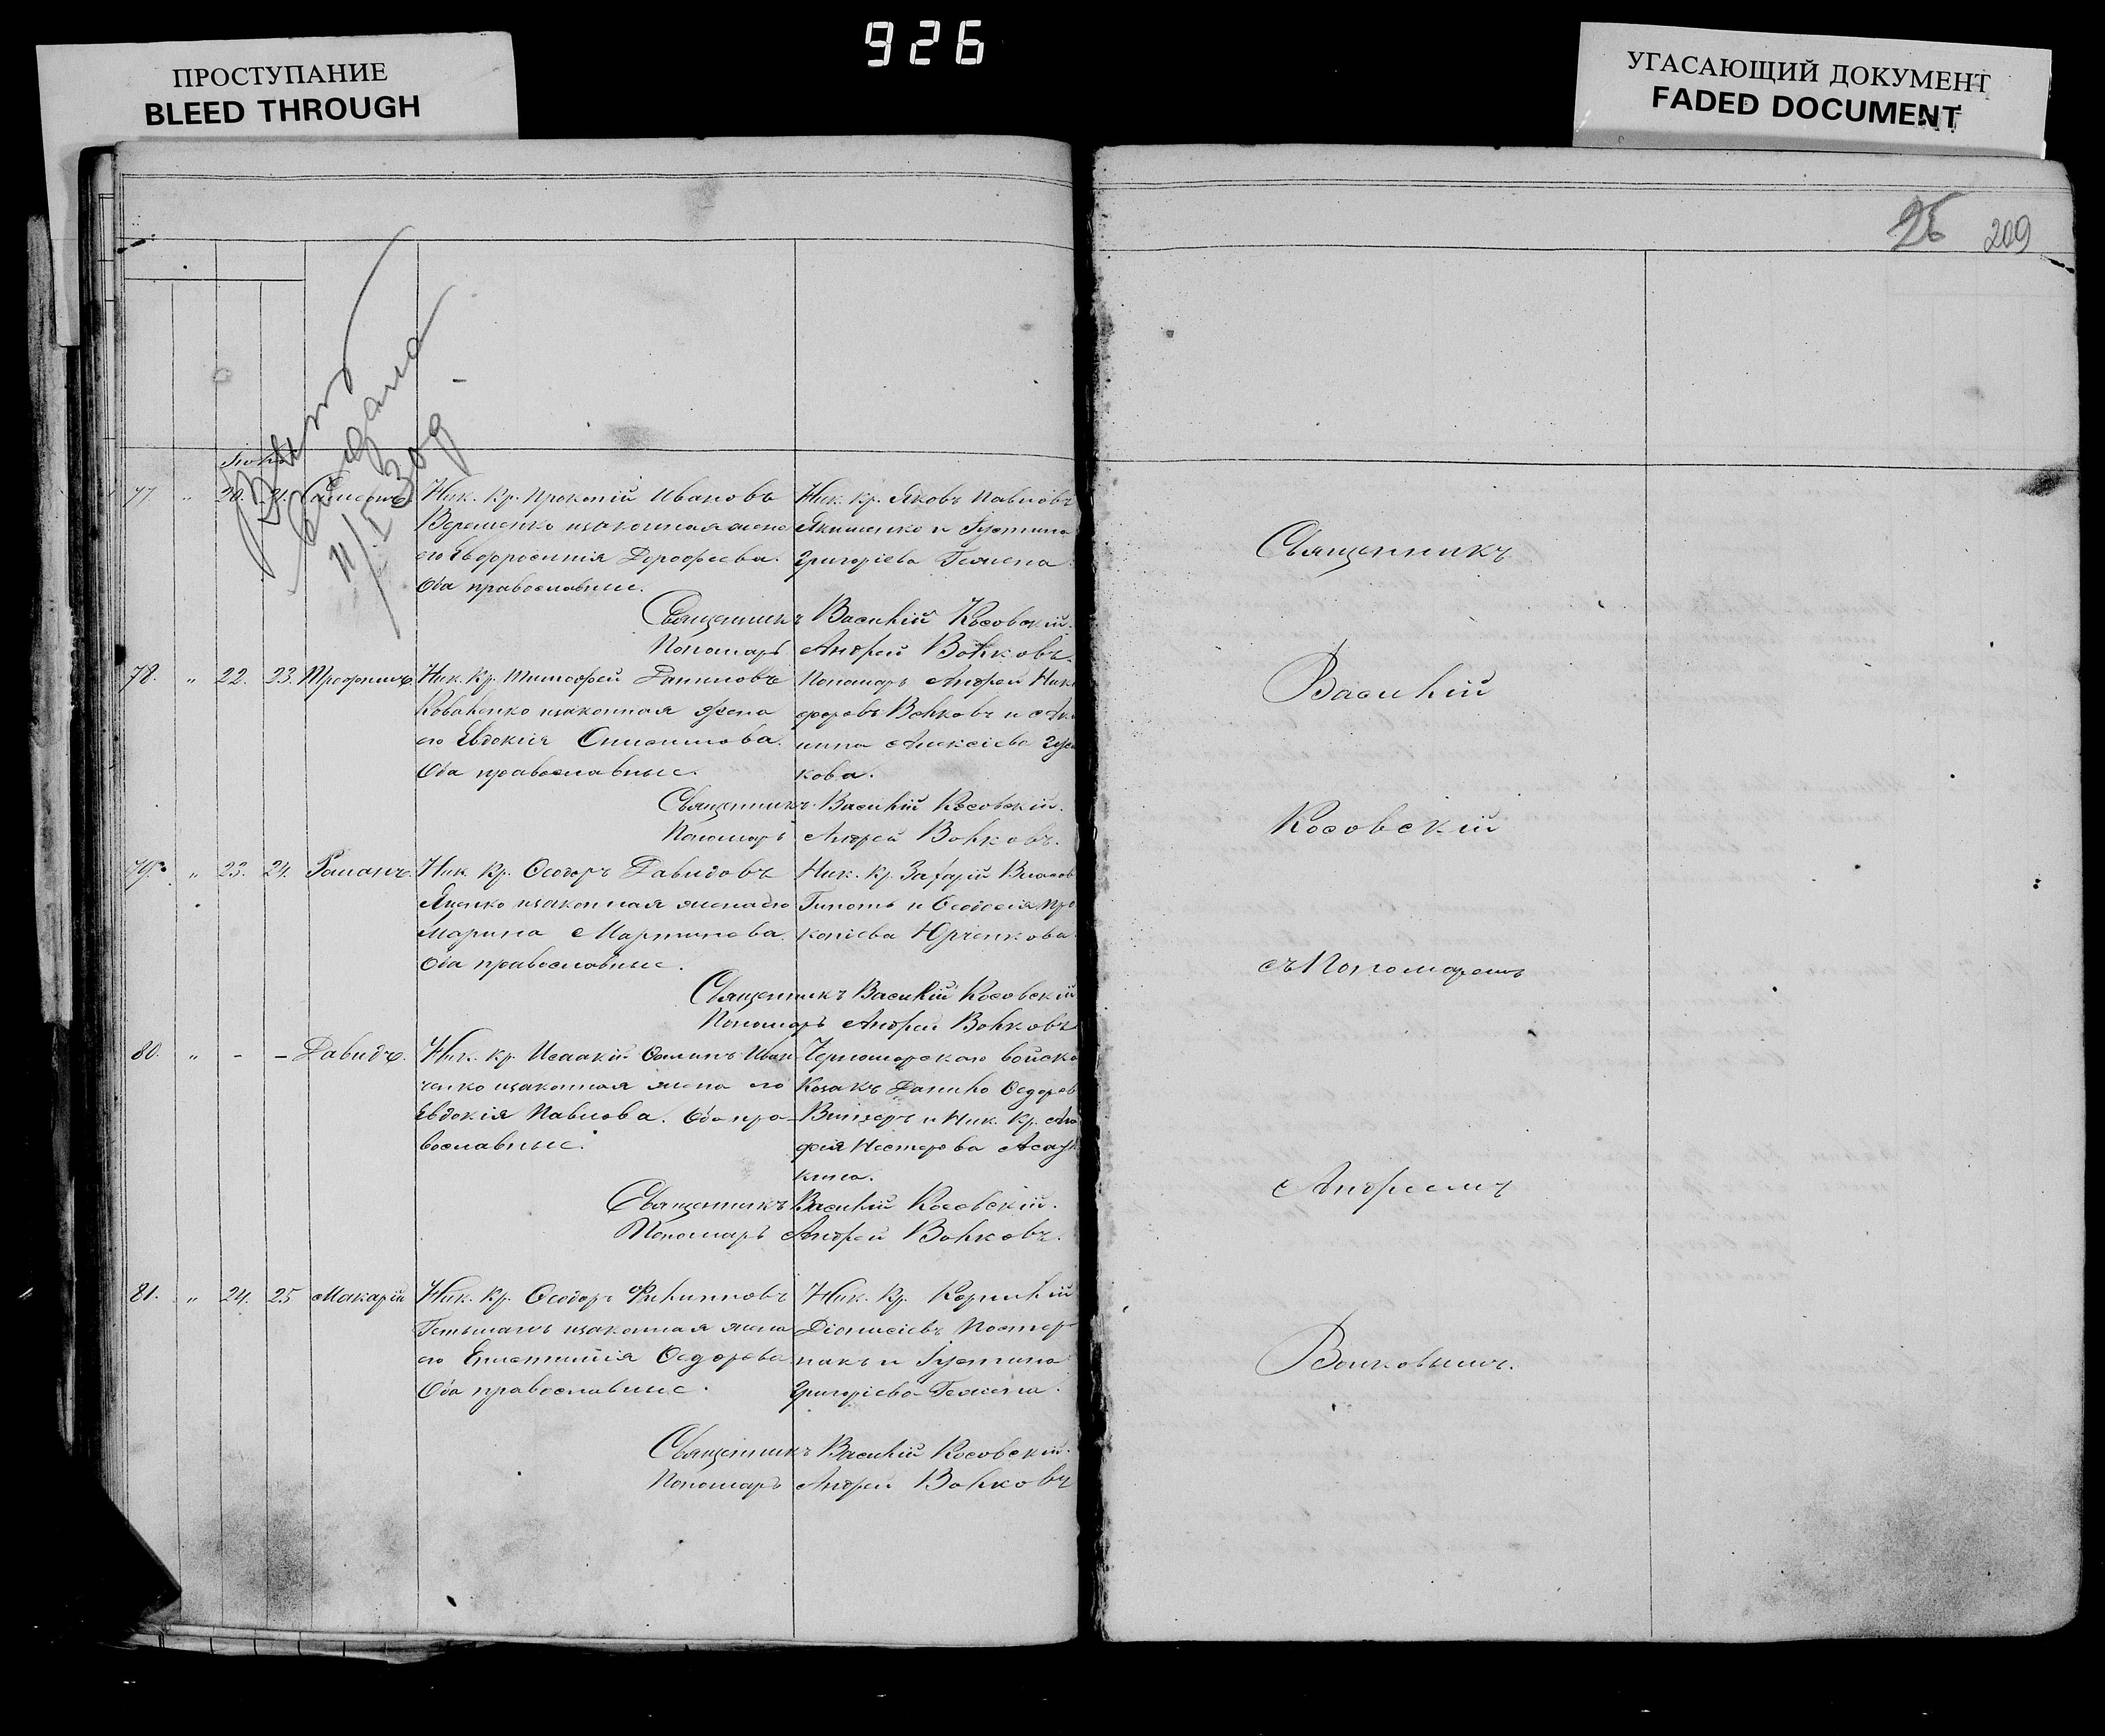 926
ПРОСТУПАНИЕ
BLEED THROUGH
УГАСАЮЩИЙ ДОКУМЕНТ
FADED DOCUMENT
26 209
выдана
11/I 30 g
77. " 20. 21. Самсонъ Ник. Кр. Прокопій Ивановъ
Верещенко изаконная жена
его Евфросинія Дорофеева.
Оба православные.
Ник. Кр. Яковъ Павловъ
Якименко и Іустина
Григоріева
Священникъ Василій Косовскій.
Пономарь Андрей Волковъ.
78. " 22. 23. Трофимъ. Ник. Кр. Тимофей Даниловъ
Коваленко изаконная жена
его Евдокія Онисимова.
Оба православные.
Пономарь Андрей Ники
форовъ Волковъ и Аку
лина Алексіева
кова.
Священникъ Василій Косовскій.
Пономарь Андрей Волковъ.
79. " 23. 24. Романъ. Ник. Кр. Феодоръ Давидовъ
Яценко изаконная жена его
Марина Мартинова.
Оба православные.
Ник. Кр. Захарій Власов
и Феодосія Про
копіева Юрченкова.
Священникъ Василій Косовскій
Пономарь Андрей Волковъ
80. " - - Давидъ. Ник. Кр. Исаакій Фоминъ Иван
ченко изаконная жена его
Евдокія Павлова. Оба пра-
вославные.
Черноморскаго войска
Козакъ Данило Федоров
и Ник. Кр. Ага
фія Нестерова
кина.
Священникъ Василій Косовскій.
Пономарь Андрей Волковъ.
81. " 24. 25 Макарій Ник. Кр. Феодоръ Филипповъ
Гетьманъ изаконная жена
его Епистимія Федорова
Оба православные.
Ник. Кр. Корнилій
Діонисіевъ Постер
накъ и Іустина
Григоріева
Священникъ Василій Косовскій.
Пономарь Андрей Волковъ
Священникъ
Василій
Косовскій
съ Пономаремъ
Андреемъ
Волковымъ.